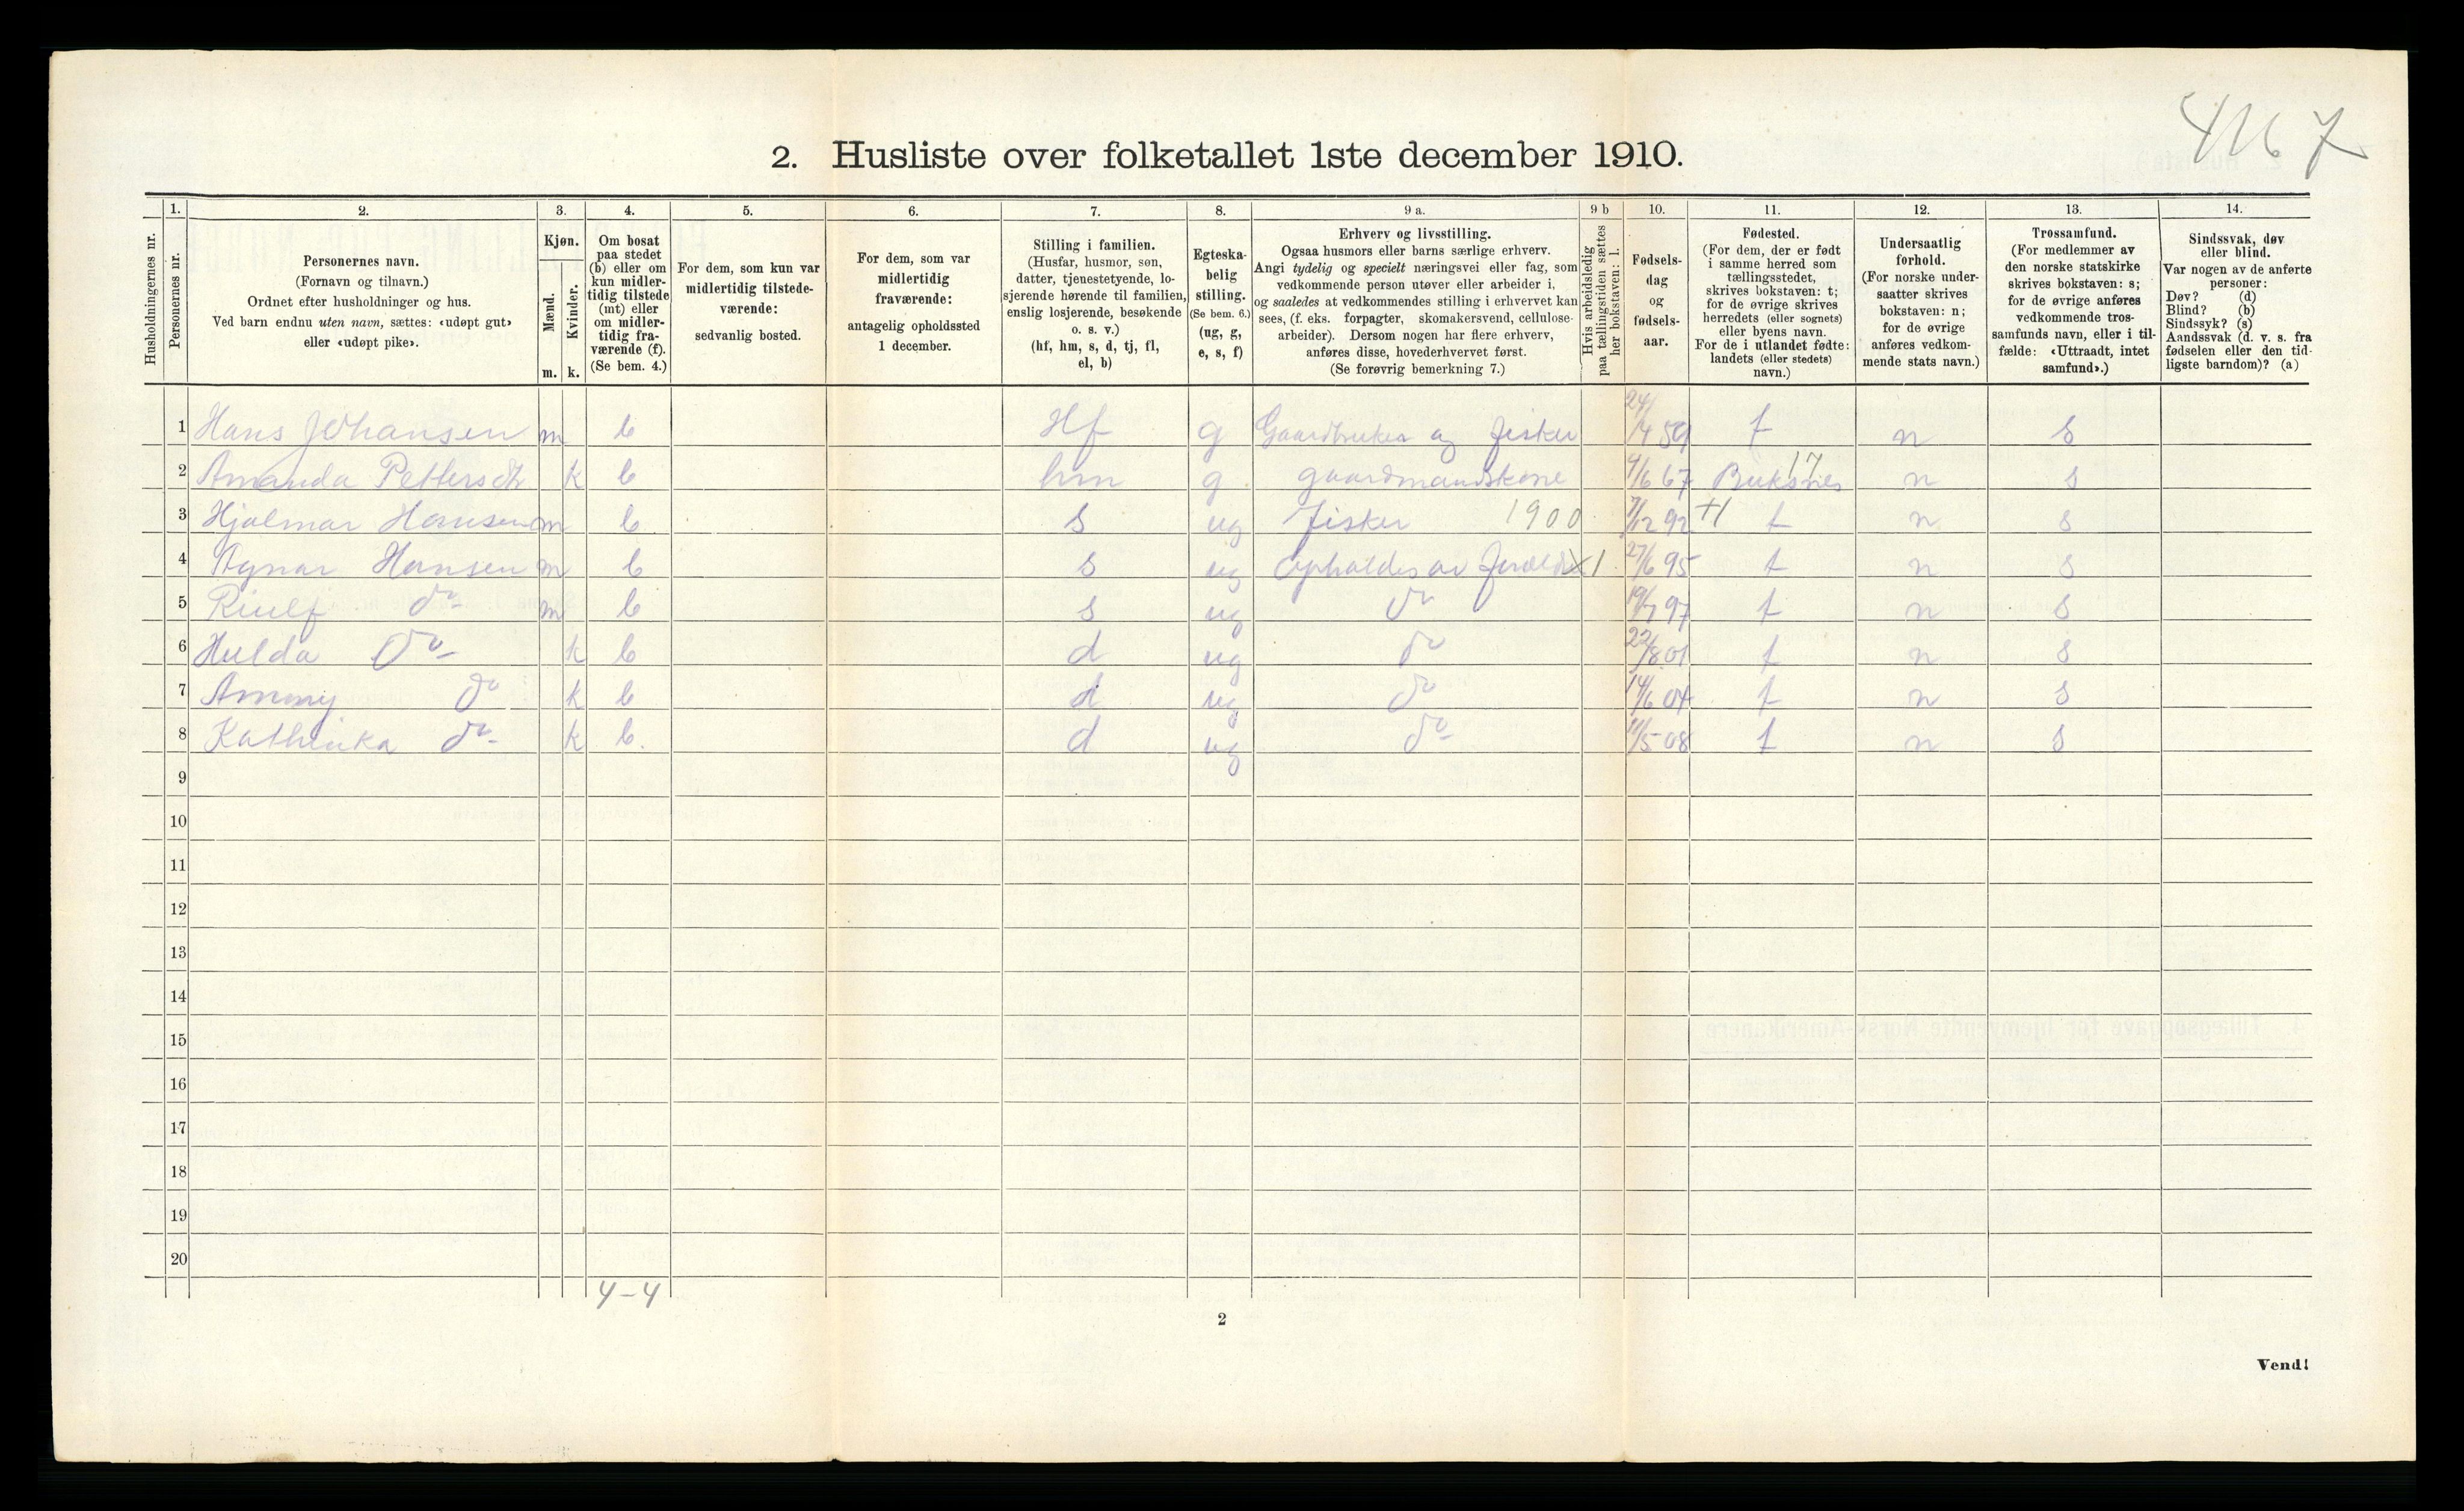 4167
2. Husliste over folketallet 1ste december 1910.
Husholdningernes nr.
1.
Personernes nr.
2.
Personernes navn.
(Fornavn og tilnavn.)
Ordnet efter husholdninger og hus.
Ved barn endnu uten navn, sættes: «udøpt gut»
eller «udøpt pike».
3.
Kjøn.
Mænd.
Kvinder.
m. k.
4.
Om bosat
paa stedet
(b) eller om
kun midler-
tidig tilstede
(mt) eller
om midler-
tidig fra-
værende (f).
(Se bem. 4.)
5.
For dem, som kun var
midlertidig tilstede-
værende:
sedvanlig bosted.
6.
For dem, som var
midlertidig
fraværende:
antagelig opholdssted
1 december.
7.
Stilling i familien.
(Husfar, husmor, søn,
datter, tjenestetyende, lo-
sjerende hørende til familien,
enslig losjerende, besøkende
o. s. v.)
(hf, hm, s, d, tj, fl,
el, b)
8.
Egteska-
belig
stilling.
(Se bem. 6.)
(ug, g,
e, s, f)
9 a.
Erhverv og livsstilling.
Ogsaa husmors eller barns særlige erhverv.
Angi tydelig og specielt næringsvei eller fag, som
vedkommende person utøver eller arbeider i,
og saaledes at vedkommendes stilling i erhvervet kan
sees, (f. eks. forpagter, skomakersvend, cellulose-
arbeider). Dersom nogen har flere erhverv,
anføres disse, hovederhvervet først.
(Se forøvrig bemerkning 7.)
9 b
Hvis arbeidsledig
paa tællingstiden sættes
her bokstaven: l.
10.
Fødsels-
dag
og
fødsels-
aar.
11.
Fødested.
(For dem, der er født
i samme herred som
tællingsstedet,
skrives bokstaven: t;
for de øvrige skrives
herredets (eller sognets)
eller byens navn.
For de i utlandet fødte:
landets (eller stedets)
navn.)
12.
Undersaatlig
forhold.
(For norske under-
saatter skrives
bokstaven: n;
for de øvrige
anføres vedkom-
mende stats navn.)
13.
Trossamfund.
(For medlemmer av
den norske statskirke
skrives bokstaven: s;
for de øvrige anføres
vedkommende tros-
samfunds navn, eller i til-
fælde: «Uttraadt, intet
samfund».)
14.
Sindssvak, døv
eller blind.
Var nogen av de anførte
personer:
Døv? (d)
Blind? (b)
Sindssyk? (s)
Aandssvak (d. v. s. fra
fødselen eller den tid-
ligste barndom)? (a)
1 Hans Johansen m b Hf g Gaardbruker og fisker 24/4 59 t n s
2 Amanda Pettersdtr k b hm g gaardmandskone 4/6 67 Buksnes 17 n s
3 Hjalmar Hansen m b s ug Fisker 1900 7/12 92 +1 t n s
4 Agnar Hansen m b s ug Opholdes av X1 27/6 95 t n s
5 Riulf do m b s ug do 19/7 97 t n s
6 Hulda do k b d ug do 22/8 01 t n s
7 Ammy do k b d ug do 14/6 04 t n s
8 Kathinka do k b. d ug do 11/5 08 t n s
9
10
11
12
13
14
15
16
17
18
19
20
4-4
2
Vend!